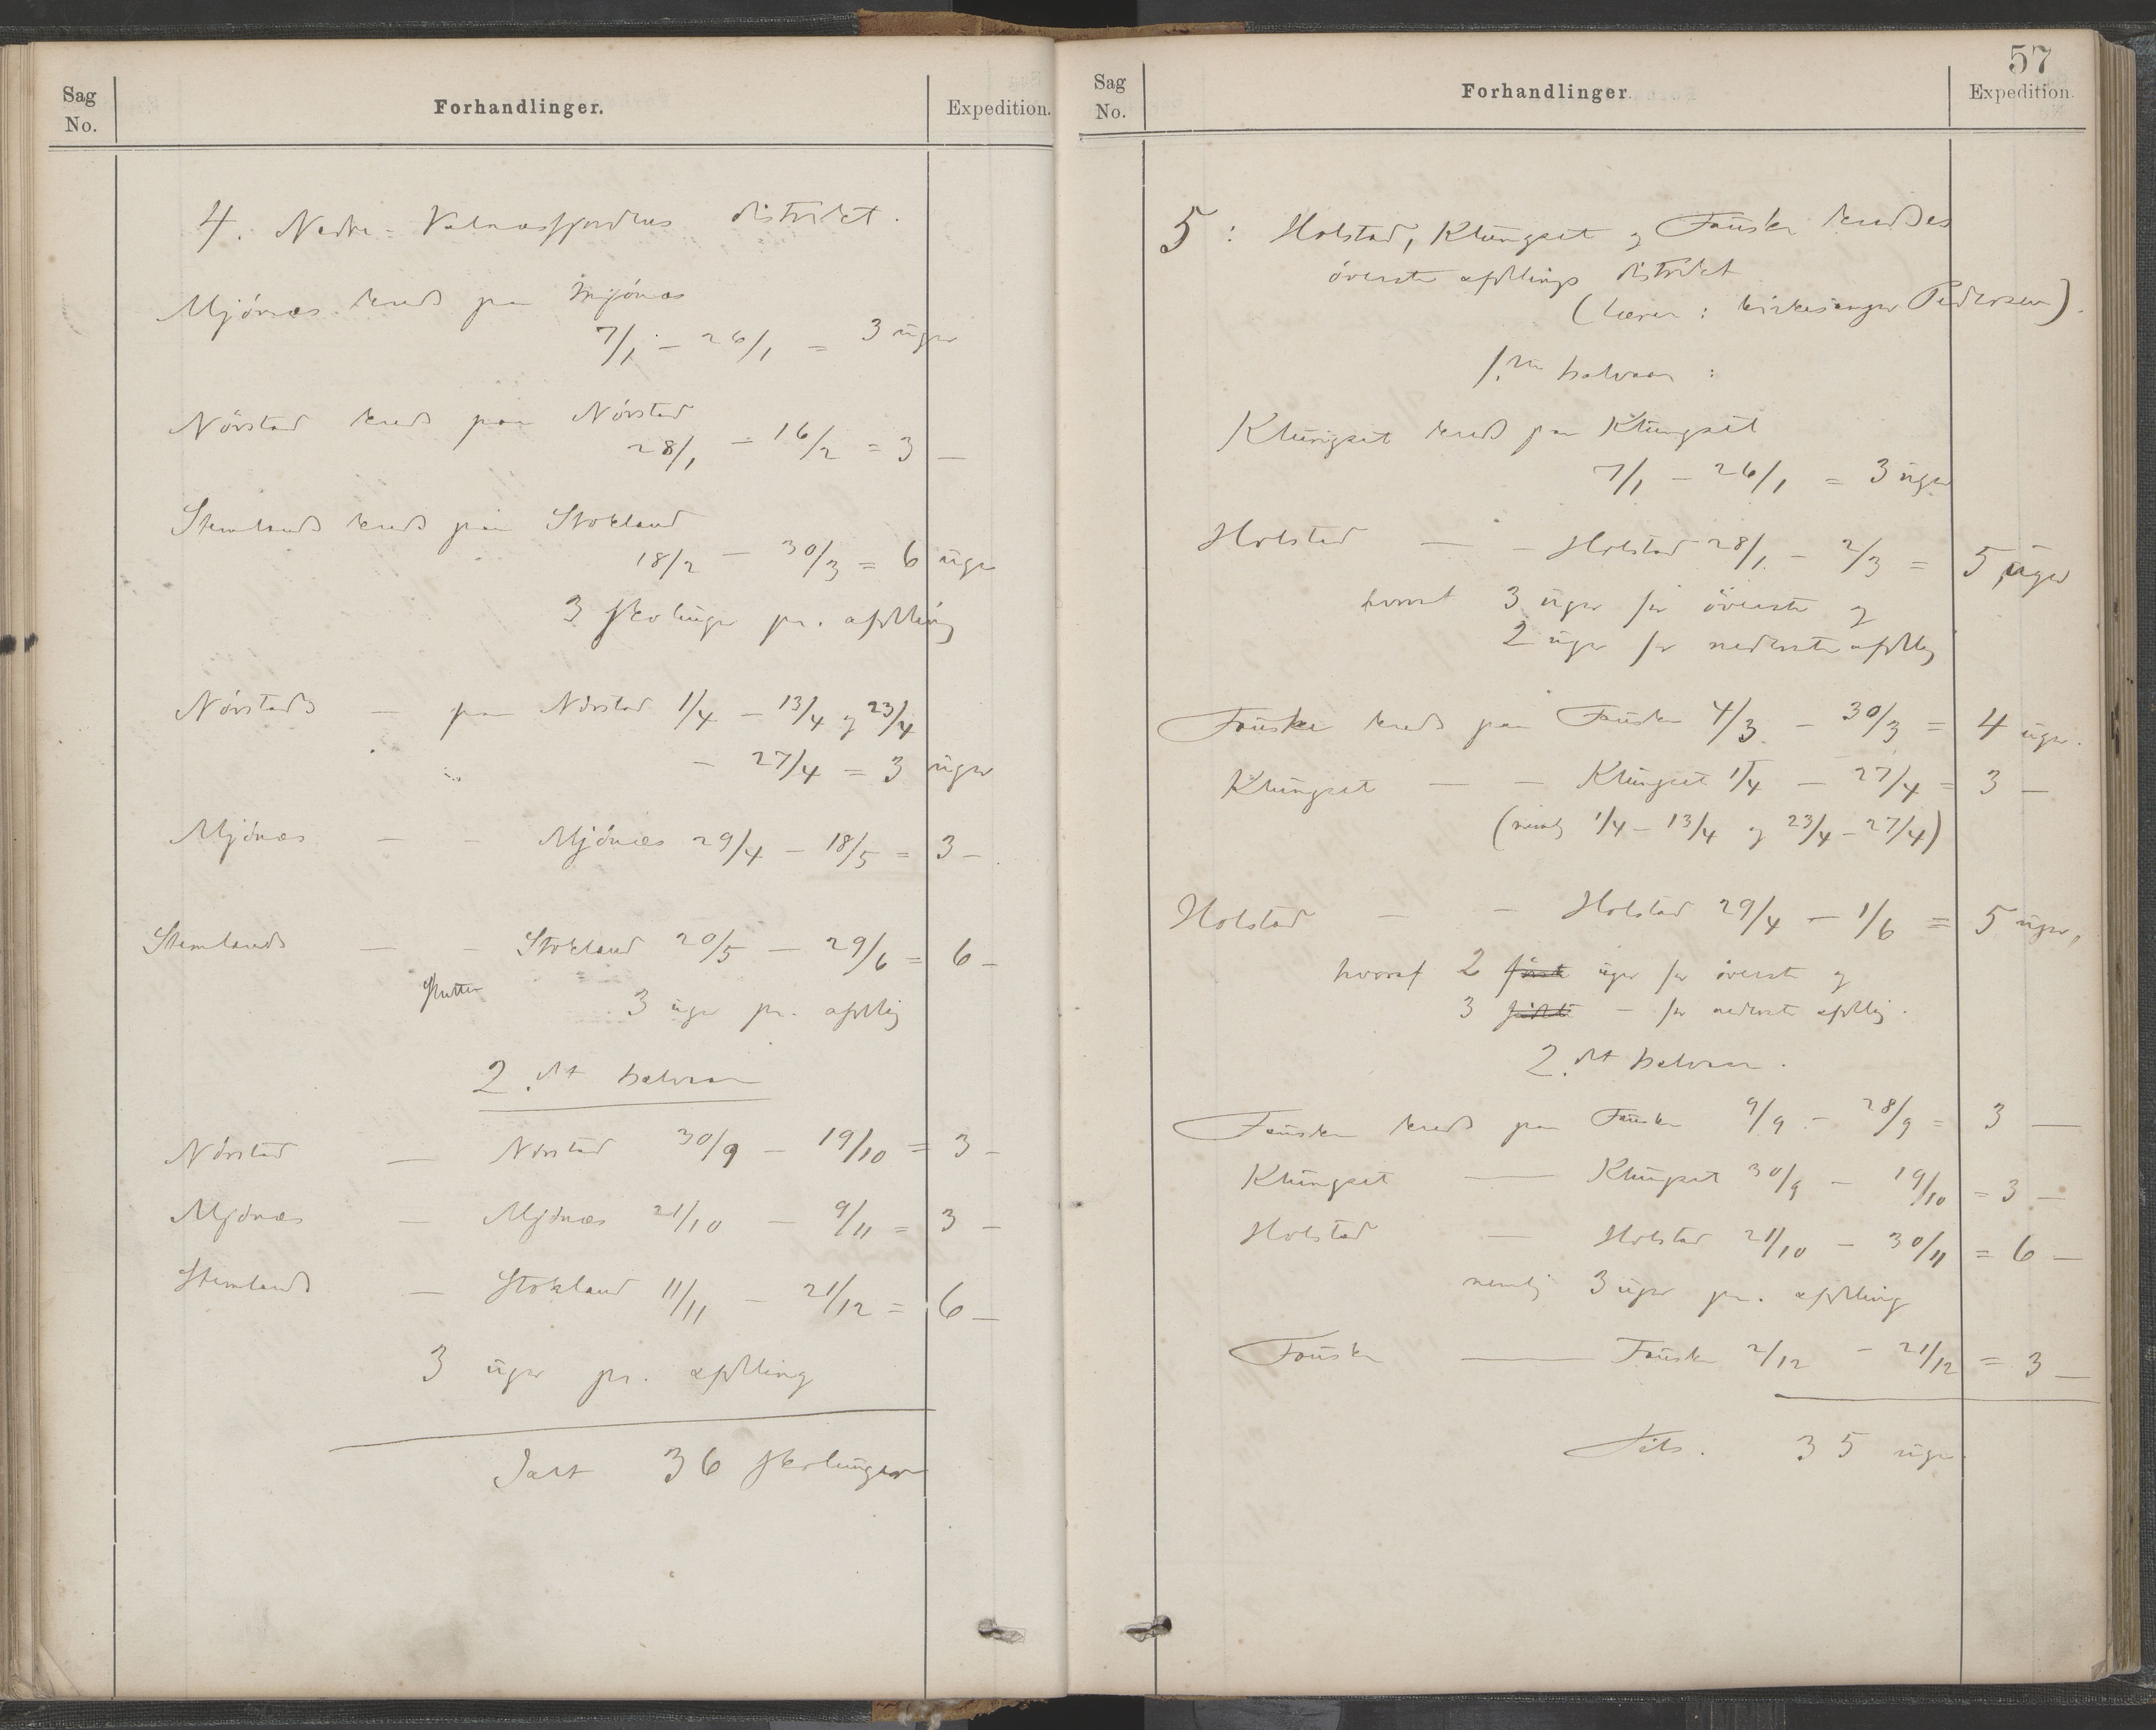 Sag
No.
Forhandlinger.
Expedition.
4. Nedre-Valnæsfjordens distrikt.
Mjónæs kreds paa Mjónæs
7/1 - 26/1 = 3 uger
Nórstad kreds paa Nórstad
28/1 - 16/2 = 3 -
Stemlands kreds paa Stokland
18/2 - 30/3 = 6 uger
3 skoluger pr. afdeling
Nórstads - paa Nórstad 1/4 - 13/4 og 23/4
- 27/4 = 3 uger
Mjónæs - - Mjónæs 29/4 - 18/5 = 3 -
Stemlands - - Stokland 20/5 - 29/6 = 6 -
3 uger pr. afdling
2.det halvaar
Nórstad - Nórstad 30/9 - 19/10 = 3 -
Mjónæs - Mjónæs 21/10 - 9/11 = 3 -
Stemlands - Stokland 11/11 - 21/12 = 6 -
3 uger pr. afdeling
Ialt 36 skoluger
57
Sag
No.
Forhandlinger.
Expedition.
5: Holstad, Klungset og Fauske kredses
óverste afdelings distrikt
(Lærer: kirkesanger Pedersen).
1.ste halvaar:
Klungset kreds paa Klungset
7/1 - 26/1 = 3 uger
Holstad - - Holstad 28/1 - 2/3 = 5 uger
hvoraf 3 uger for óverste og
2 uger for nederste afdling
Fauske kreds paa Fauske 4/3 - 30/3 = 4 uger.
Klungset - - Klungset 1/4 - 27/4 = 3 -
(nemlig 1/4 - 13/4 og 23/4 - 27/4)
Holstad - - Holstad 29/4 - 1/6 = 5 uger,
hvoraf 2 uger for óverste og
3 - for nederste afdling.
2.det halvaar.
Fauske kreds paa Fauske 9/9 - 28/9 = 3 -
Klungset - Klungset 30/9 - 19/10 = 3 -
Holstad - Holstad 21/10 - 30/11 = 6 -
nemlig 3 uger pr. afdeling
Fauske - Fauske 2/12 - 21/12 = 3 -
Tils. 35 uger